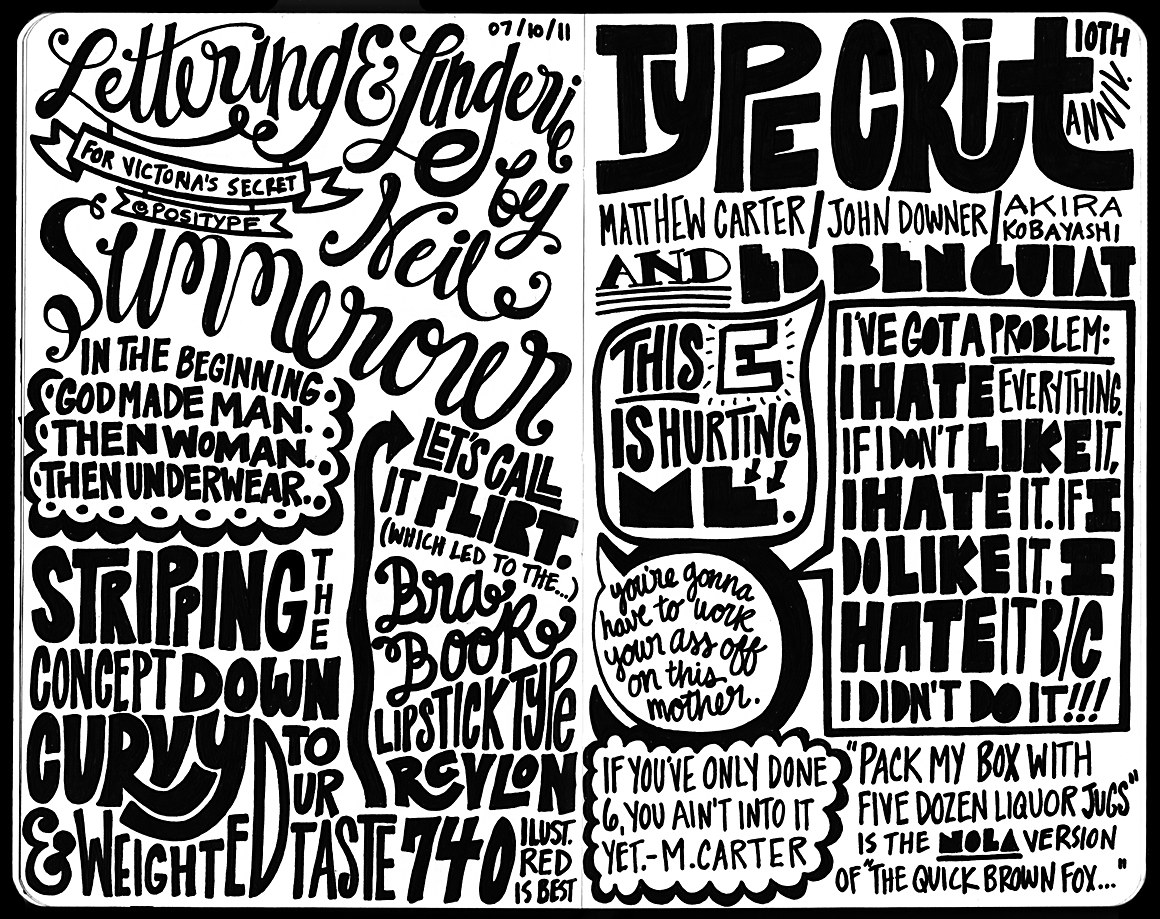 07/10/11
Lettering & Lingerie
FOR VICTORIA'S SECRET
@POSITYPE
by
Neil
Summerour
IN THE BEGINNING
GOD MADE MAN.
THEN WOMAN.
THEN UNDERWEAR.
STRIPPING THE
CONCEPT DOWN
CURVY
& WEIGHTED
TO
UR
TASTE
LET'S CALL
IT FLIRT.
(WHICH LED TO THE...)
Bra
Book
LIPSTICK TYPE
REVLON
740
ILUST.
RED
IS BEST
TYPE CRIT
10TH
ANNIV.
MATTHEW CARTER / JOHN DOWNER / AKIRA
KOBAYASHI
AND ED BENGUIAT
THIS E
IS HURTING
ME.
you're gonna
have to work
your ass off
on this
mother.
I'VE GOT A PROBLEM:
I HATE EVERYTHING.
IF I DON'T LIKE IT,
I HATE IT. IF I
DO LIKE IT, I
HATE IT B/C
I DIDN'T DO IT!!!
IF YOU'VE ONLY DONE
6, YOU AIN'T INTO IT
YET. - M. CARTER
"PACK MY BOX WITH
FIVE DOZEN LIQUOR JUGS"
IS THE NOLA VERSION
OF "THE QUICK BROWN FOX..."